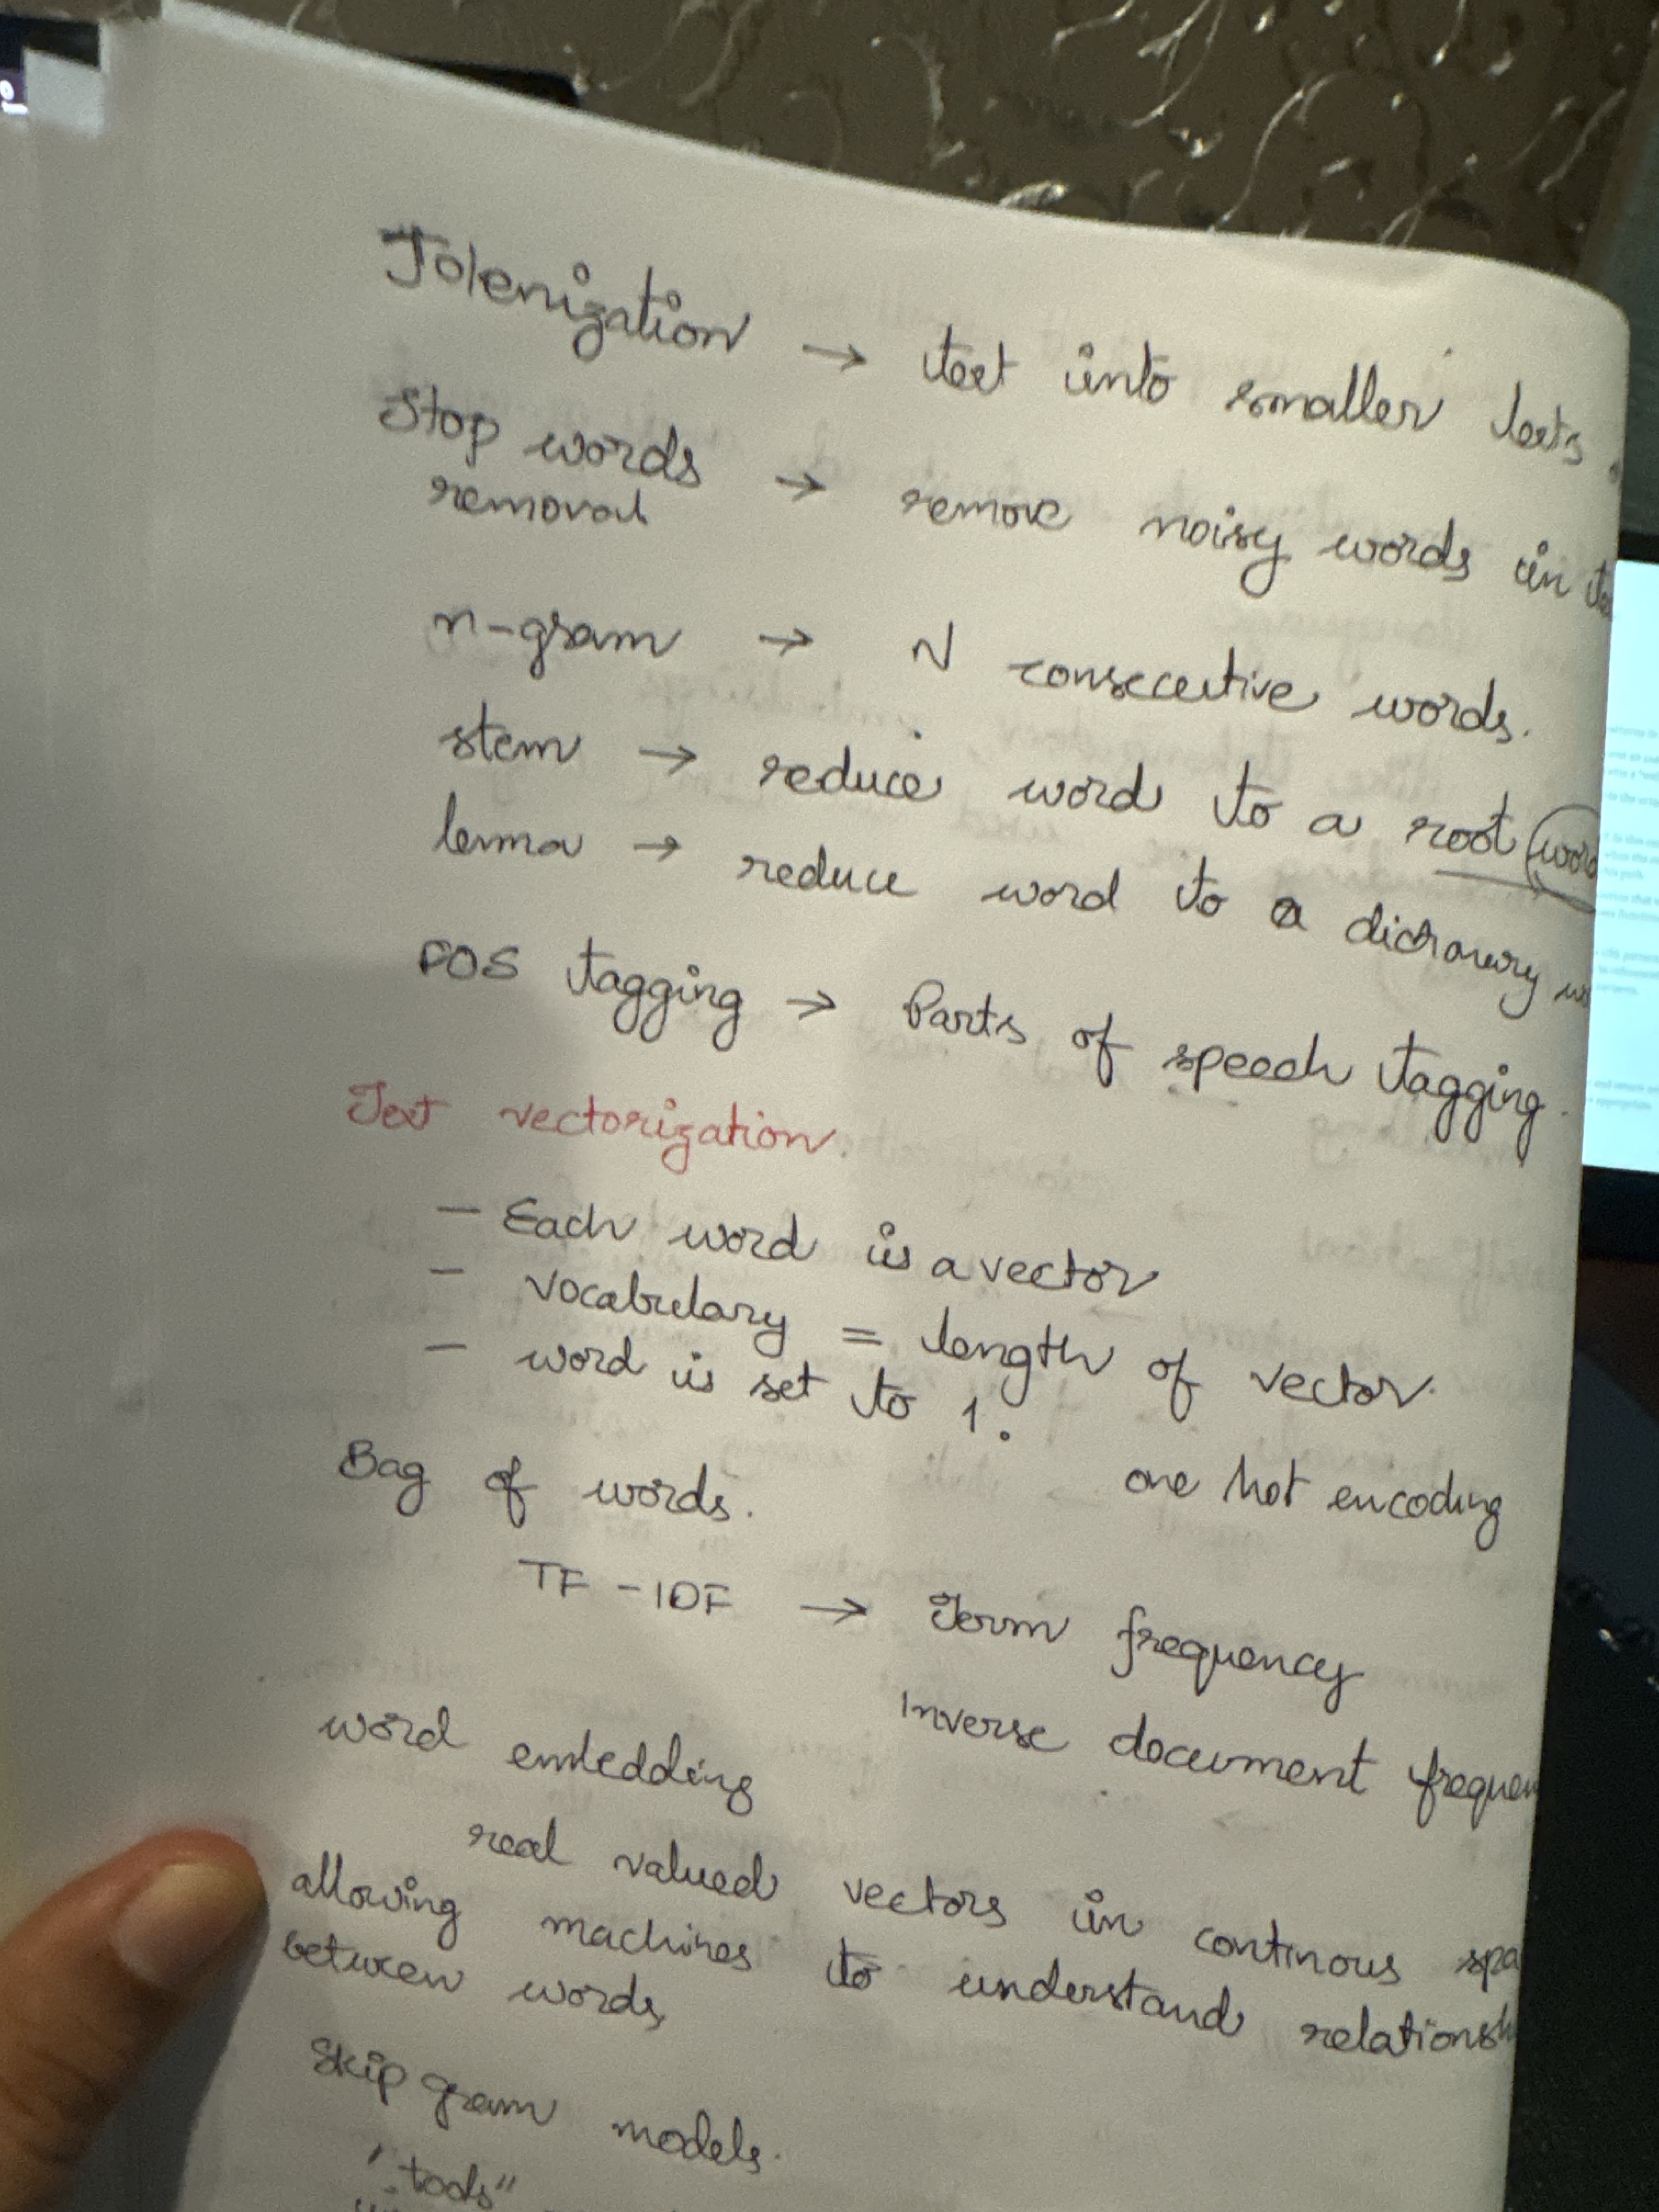 Tokenization → text into smaller texts.
Stop words → remove noisy words in
removal
n-gram → N consecutive words.
stem → reduce word to a root word
lemma → reduce word to a dictionary
POS tagging → Parts of speech tagging.
Text vectorization.
- Each word is a vector
- vocabulary = length of vector.
- word is set to 1.
one hot encoding
Bag of words.
TF-IDF → Term frequency
Inverse document frequen
word embedding
real valued vectors in continous spa
allowing machines to understand relationsh
between words,
Skip gram models.